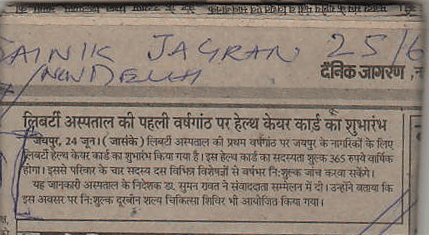 DAINIK JAGRAN 25/6
/NEW DELHI
दैनिक जागरण
लिबर्टी अस्पताल की पहली वर्षगांठ पर हेल्थ केयर कार्ड का शुभारंभ
जयपुर, 24 जून। (जासंके) लिबर्टी अस्पताल की प्रथम वर्षगांठ पर जयपुर के नागरिकों के लिए
लिबर्टी हेल्थ केयर कार्ड का शुभारंभ किया गया है। इस हेल्थ कार्ड का सदस्यता शुल्क 365 रुपये वार्षिक
होगा। इससे परिवार के चार सदस्य दस विभिन्न विशेषज्ञों से वर्षभर निःशुल्क जांच करवा सकेंगे।
यह जानकारी अस्पताल के निदेशक डा. सुमन रावत ने संवाददाता सम्मेलन में दी। उन्होंने बताया कि
इस अवसर पर निःशुल्क दूरबीन शल्य चिकित्सा शिविर भी आयोजित किया गया।